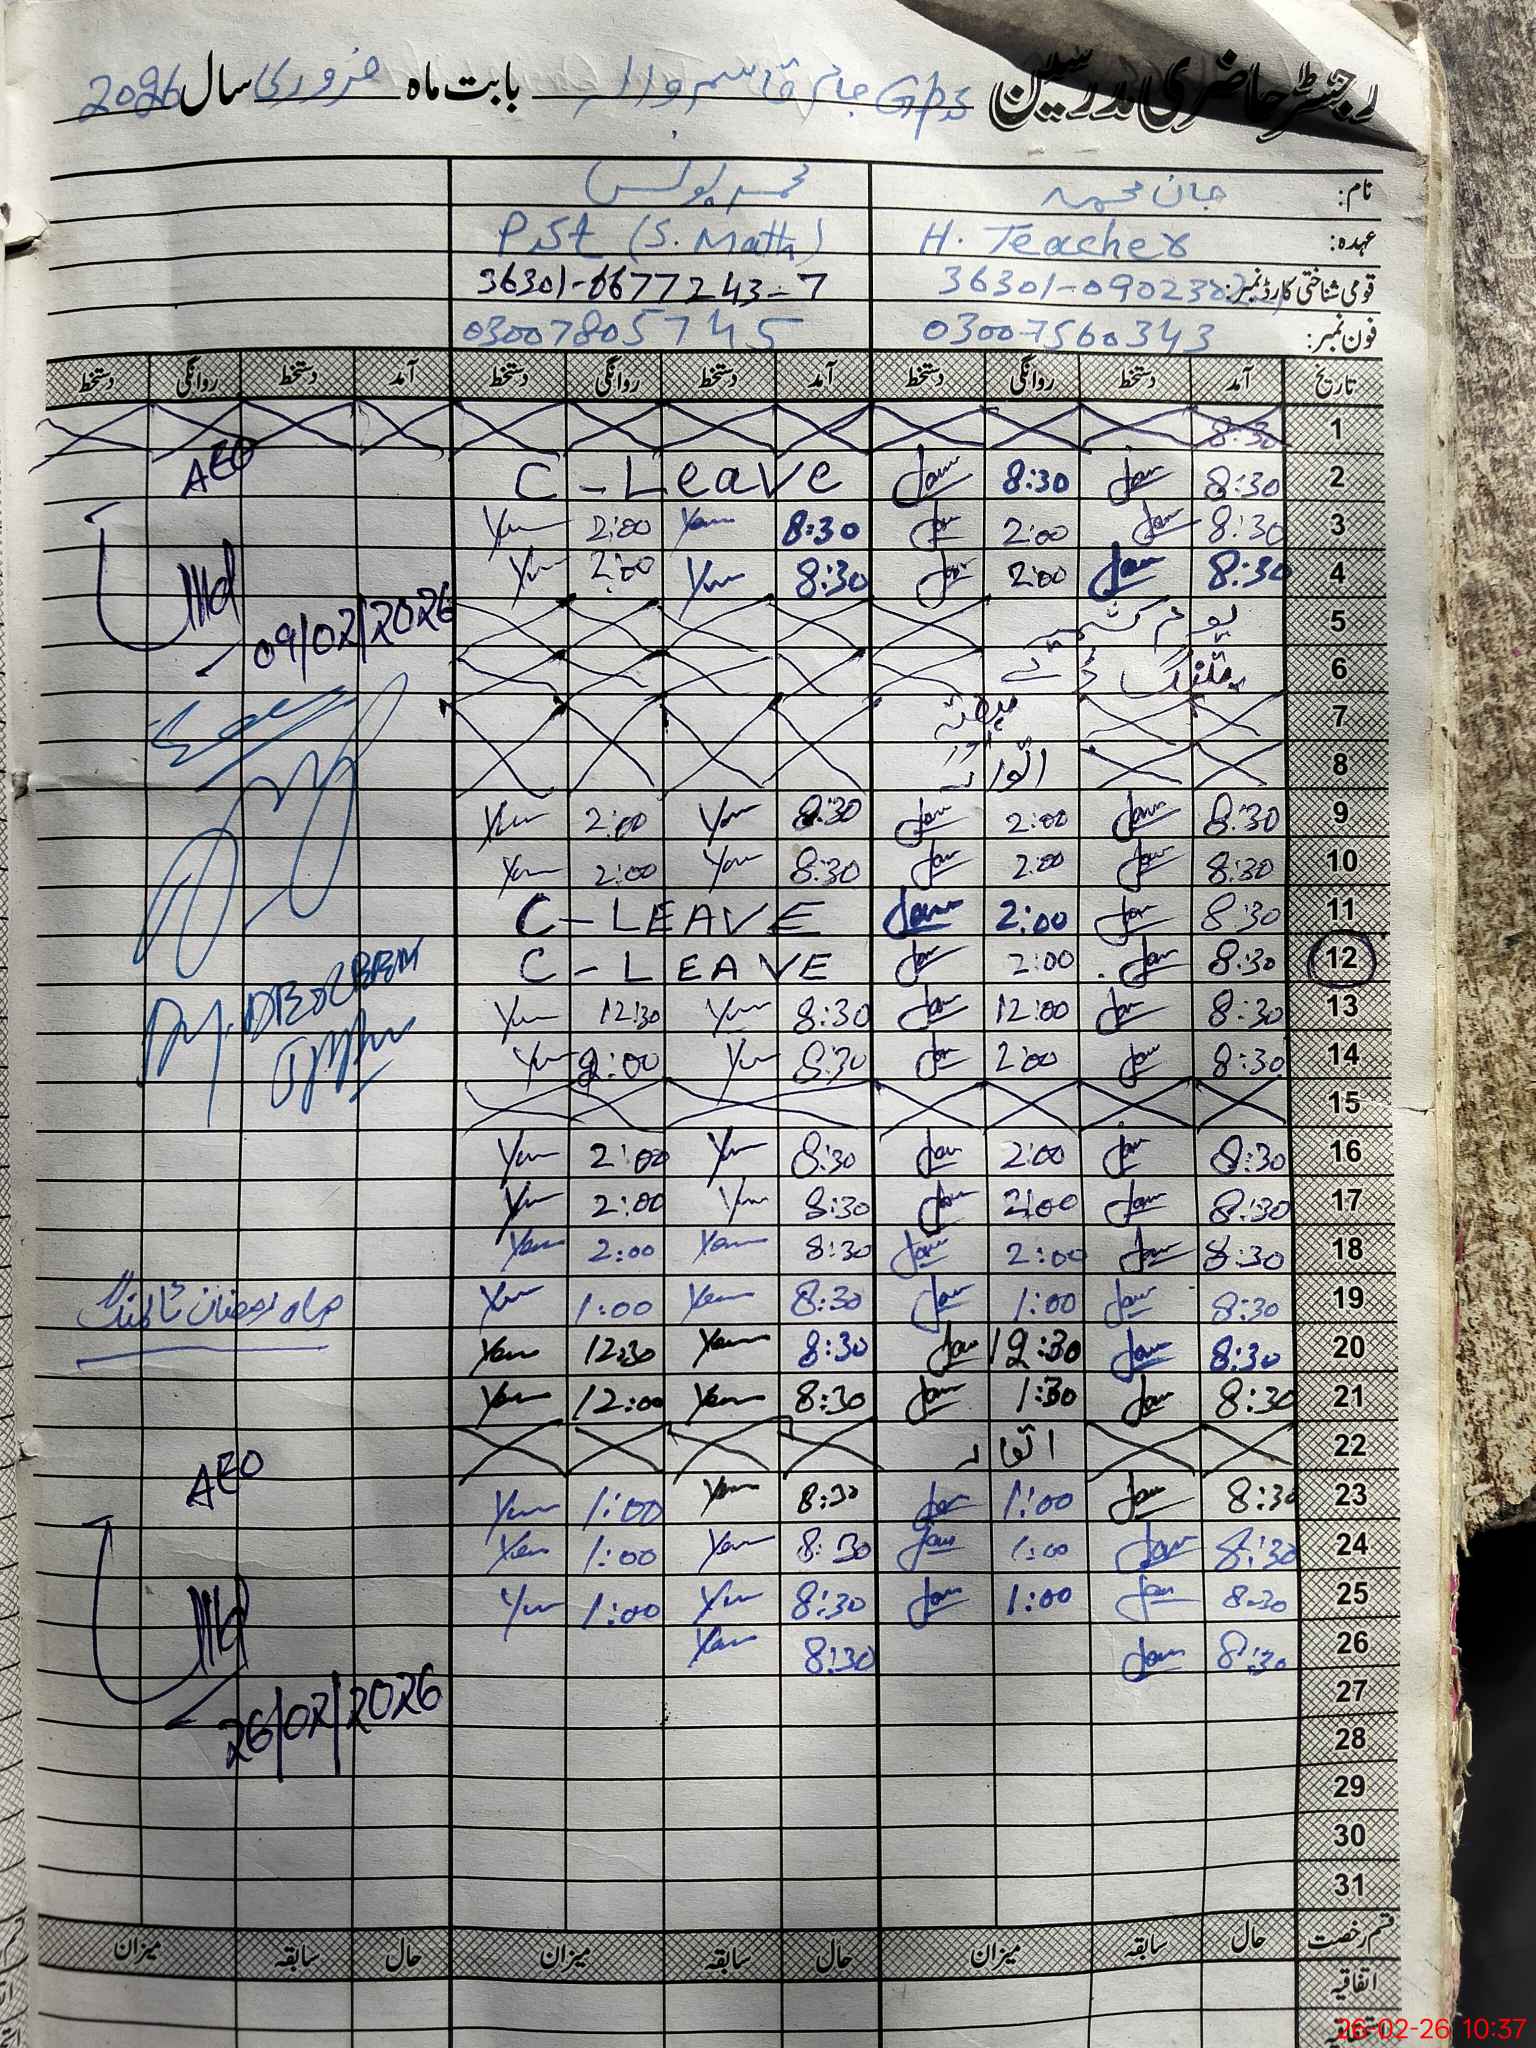 رجسٹر حاضری مدرسین Gps جام قاسم والا بابت ماہ فروری سال 2026
نام: جان محمد محمد یونس
عہدہ: H. Teacher P.S.t (S. Math)
قومی شناختی کارڈ نمبر: 36301-0902302 36301-0677243-7
فون نمبر: 03007560343 03007805745
تاریخ آمد دستخط روانگی دستخط آمد دستخط روانگی دستخط آمد دستخط روانگی دستخط
1 8:30
2 8:30 Jan 8:30 Jan C-Leave AEO
3 8:30 Jan 2:00 Jan 8:30 Yun 2:00 Yun
4 8:30 Jan 2:00 Jan 8:30 Yun 2:00 Yun
5 یوم کشمیر 09/02/2026
6
7 ہفتہ
8 اتوار
9 8:30 Jan 2:00 Jan 8:30 Yun 2:00 Yun
10 8:30 Jan 2:00 Jan 8:30 Yun 2:00 Yun
11 8:30 Jan 2:00 Jan C-LEAVE
12 8:30 Jan 2:00 Jan C-LEAVE
13 8:30 Jan 12:00 Jan 8:30 Yun 12:30 Yun
14 8:30 Jan 2:00 Jan 8:30 Yun 2:00 Yun
15
16 8:30 Jan 2:00 Jan 8:30 Yun 2:00 Yun
17 8:30 Jan 2:00 Jan 8:30 Yun 2:00 Yun
18 8:30 Jan 2:00 Jan 8:30 Yun 2:00 Yun
19 8:30 Jan 1:00 Jan 8:30 Yun 1:00 Yun ماہ رمضان ٹائمنگ
20 8:30 Jan 12:30 Jan 8:30 Yun 12:30 Yun
21 8:30 Jan 1:30 Jan 8:30 Yun 12:00 Yun
22 اتوار
23 8:30 Jan 1:00 Jan 8:30 Yun 1:00 Yun AEO
24 8:30 Jan 1:00 Jan 8:30 Yun 1:00 Yun
25 8:30 Jan 1:00 Jan 8:30 Yun 1:00 Yun
26 8:30 Jan 8:30 Yun
27 26/02/2026
28
29
30
31
قسم رخصت حال سابقہ میزان حال سابقہ میزان حال سابقہ میزان
اتفاقیہ
26-02-26 10:37